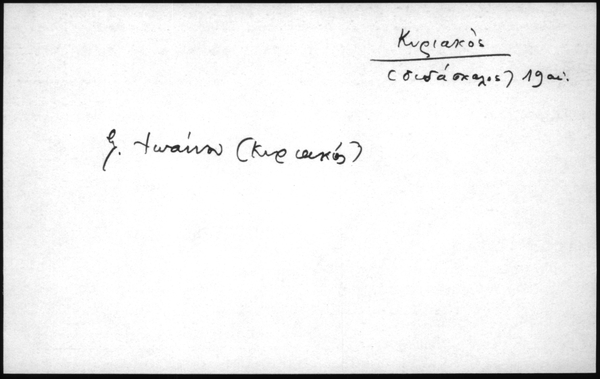 Κυριακός
(διδάσκαλος) 19 αι.
ζ. Ἰωάννου (Κυριακός)